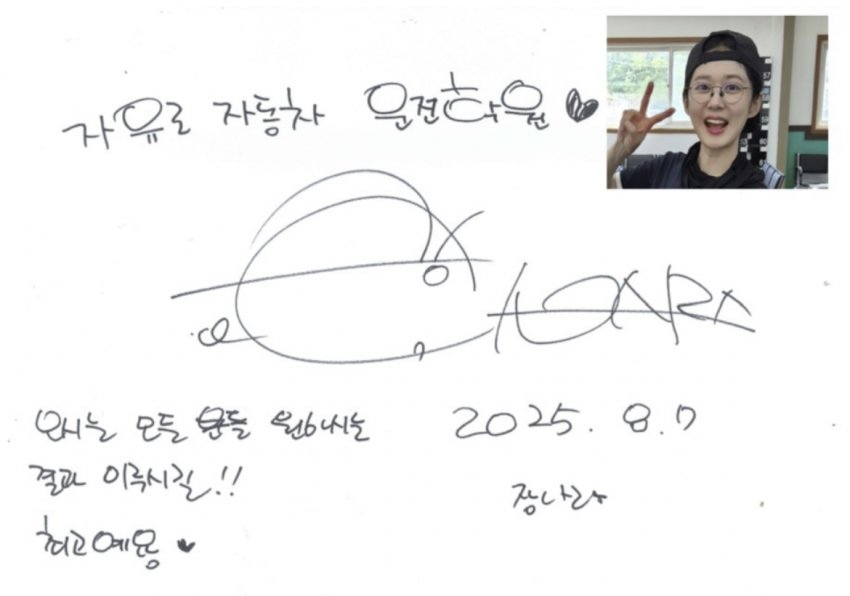 자유로 자동차 운전학원 ♥
NARA
오시는 모든 분들 원하시는
결과 이루시길!!
최고예용 ♥
2025. 8. 7
장나라